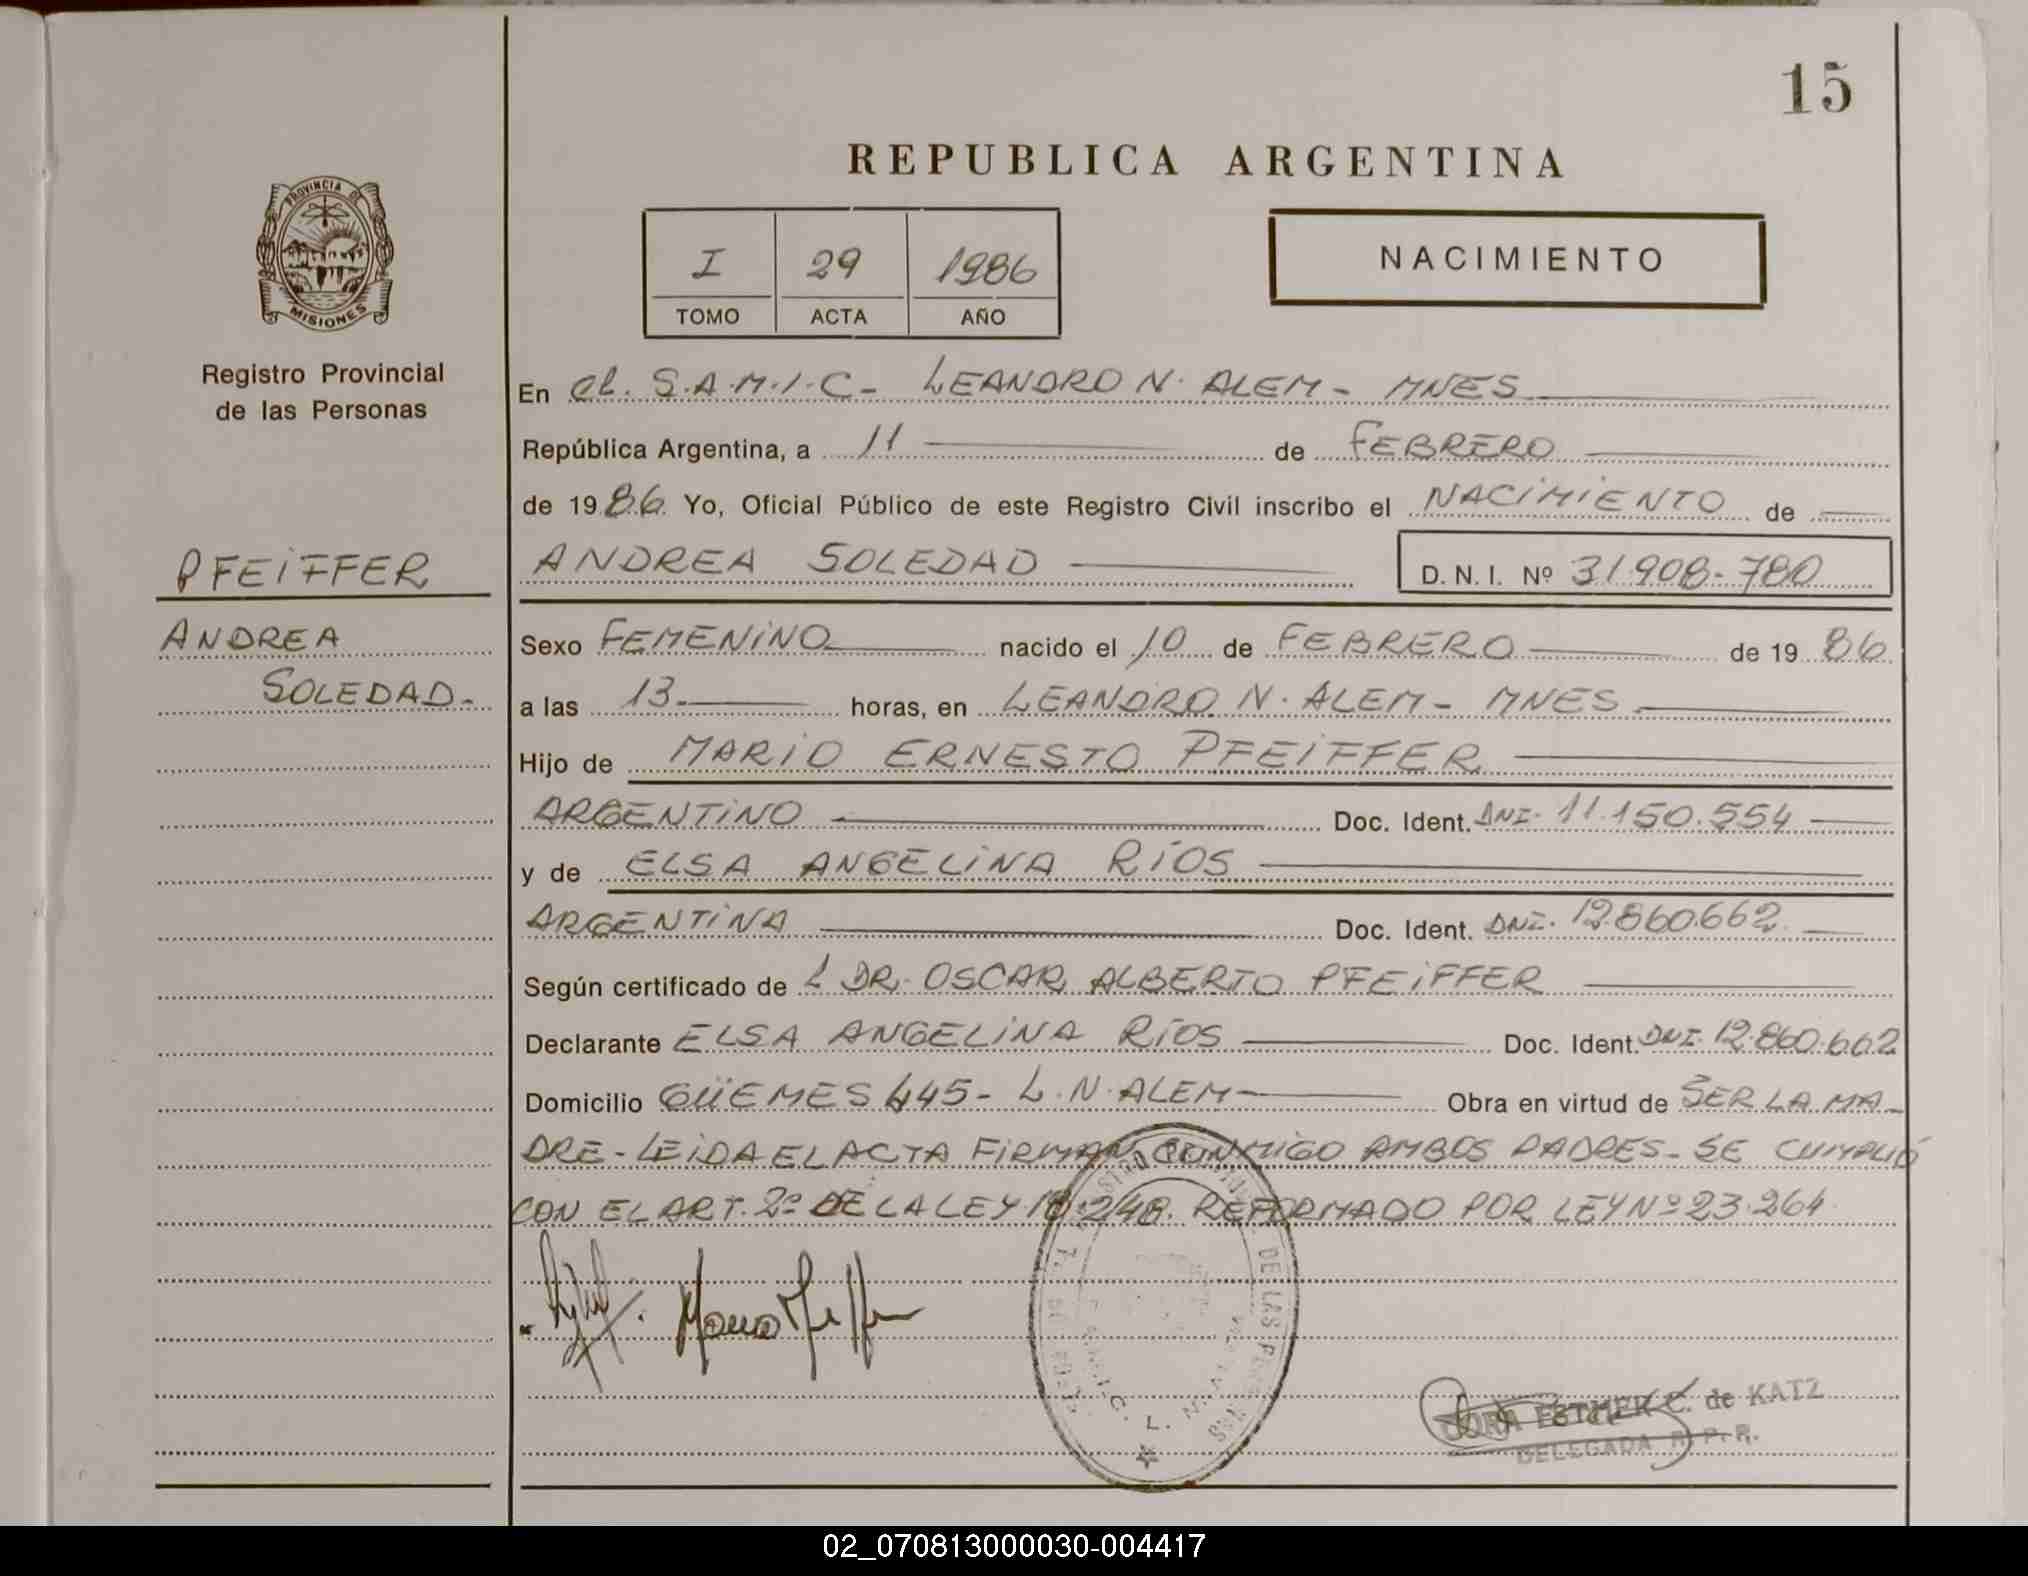 15
REPUBLICA ARGENTINA
PROVINCIA DE
MISIONES
Registro Provincial
de las Personas
I 29 1986
TOMO ACTA AÑO
NACIMIENTO
En el. S.A.M.I.C- LEANDRO N. ALEM- MNES
República Argentina, a 11 de FEBRERO
de 1986 Yo, Oficial Público de este Registro Civil inscribo el NACIMIENTO de
PFEIFFER
ANDREA SOLEDAD D. N. I. Nº 31.908-780
ANDREA
SOLEDAD-
Sexo FEMENINO nacido el 10 de FEBRERO de 1986
a las 13- horas, en LEANDRO N. ALEM- MNES
Hijo de MARIO ERNESTO PFEIFFER
ARGENTINO Doc. Ident. DNI- 11.150.554
y de ELSA ANGELINA RÍOS
ARGENTINA Doc. Ident. DNI- 12.860.662
Según certificado de L DR. OSCAR ALBERTO PFEIFFER
Declarante ELSA ANGELINA RÍOS Doc. Ident. DNI- 12.860.662
Domicilio GÜEMES 445- L.N. ALEM Obra en virtud de SER LA MA-
DRE- LEIDA EL ACTA FIRMAN CONMIGO AMBOS PADRES- SE CUMPLIÓ
CON EL ART. 2º DE LA LEY 18.248. REFORMADO POR LEY Nº 23.264.
DE LAS
ESTHER C. de KATZ
DELEGADA R. P. P.
02_070813000030-004417